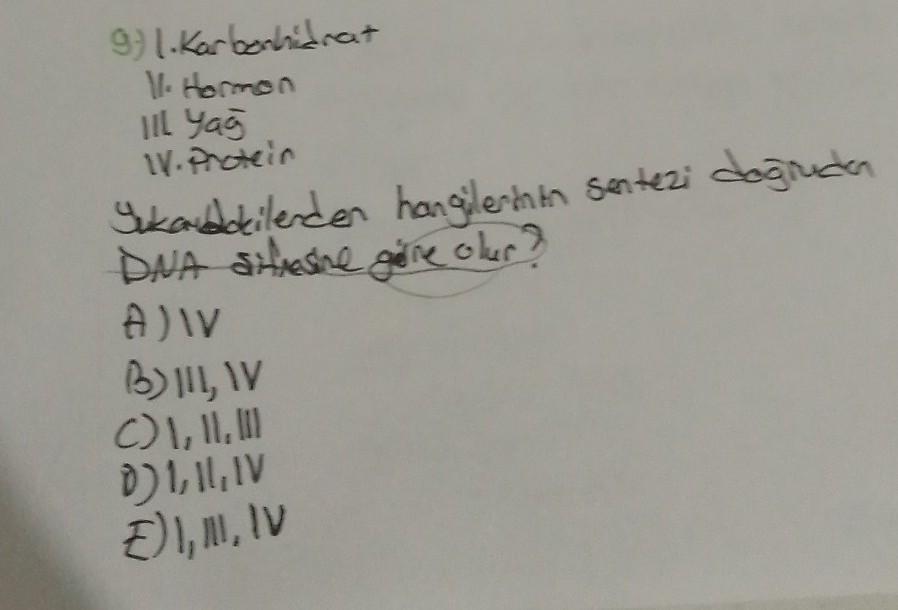 9) I. Karbonhidrat
II. Hormon
III Yağ
IV. Protein
Yukarıdakilerden hangilerinin sentezi doğrudan
DNA şifresine göre olur?
A) IV
B) III, IV
C) I, II, III
D) I, II, IV
E) I, III, IV